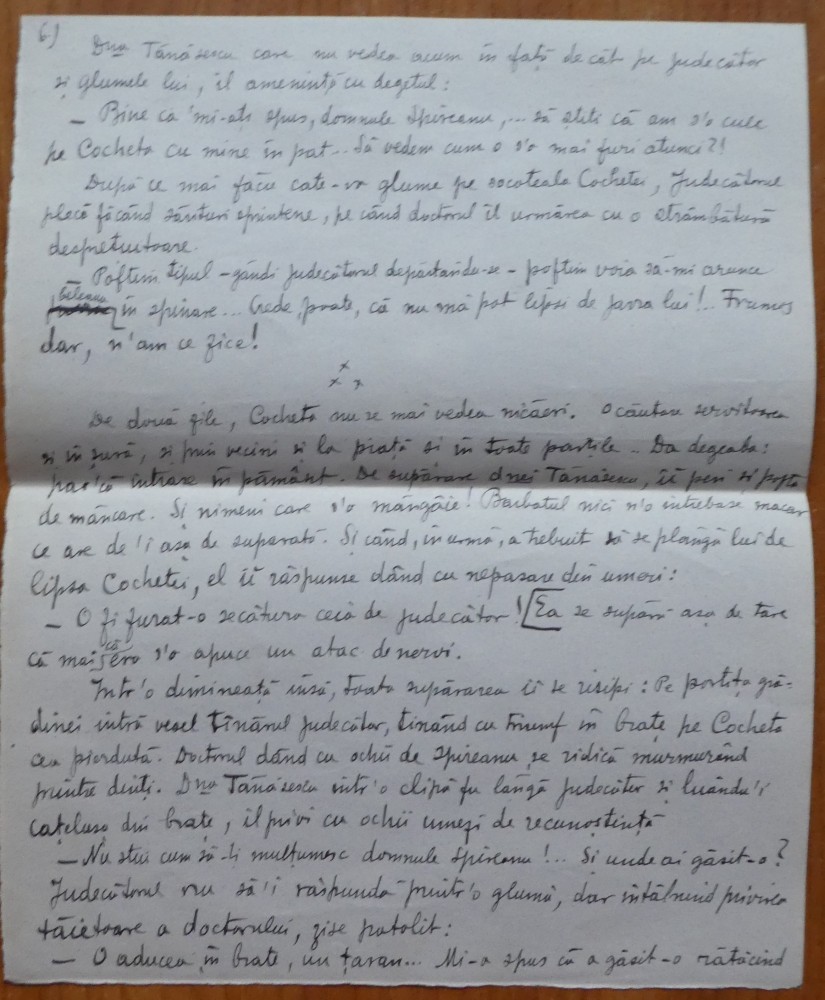 6)
Dna Tănăsescu care nu vedea acum în față decât pe judecător
și glumele lui, îl amenință cu degetul:
– Bine că 'mi-ați spus, domnule Spireanu,... să știți că am s'o culc
pe Cocheta cu mine în pat... Să vedem cum o s'o mai furi atunci?!
După ce mai făcu cate-va glume pe socoteala Cochetei, Judecătorul
plecă făcând sărituri sprintene, pe când doctorul îl urmărea cu o strâmbătură
desprețuitoare.
– Poftim tipul – gândi judecătorul depărtându-se – poftim voia să-mi arunce
beleaua în spinare... Crede, poate, că nu mă pot lipsi de javra lui!.. Frumos
dar, n'am ce zice!
x x x
De două zile, Cocheta nu se mai vedea nicăeri. O căutase servitoarea
și în șură, și prin vecini și la piață și în toate părțile... Da degeaba:
par'că intrase în pământ. De supărare dnei Tănăsescu, îi peri și pofta
de mâncare. Și nimeni care s'o mângâie! Barbatul nici n'o intrebase macar
ce are de 'i așa de suparată. Și când, in urmă, a trebuit să se plângă lui de
lipsa Cochetei, el îi răspunse dând cu nepasare din umeri:
– O fi furat-o secătura ceia de judecător! Ea se supără așa de tare
că mai că era s'o apuce un atac de nervi.
Intr'o dimineață insă, toata supărarea ii se risipi: Pe portița gră-
dinei intră vesel tînărul judecător, tinând cu triumf în brațe pe Cocheta
cea pierdută. Doctorul dând cu ochii de Spireanu se ridică murmurând
printre dinți. Dna Tănăsescu intr'o clipă fu langă judecător și luându'i
cațelușa din brațe, il privi cu ochii umezi de recunoștință
– Nu știu cum să-ți mulțumesc domnule Spireanu!... Și unde ai găsit-o?
Judecătorul vru să'i răspundă printr'o glumă, dar intâlnind privirea
tăietoare a doctorului, zise potolit:
– O aducea in brate, un țaran... Mi-a spus că a găsit-o rătăcind